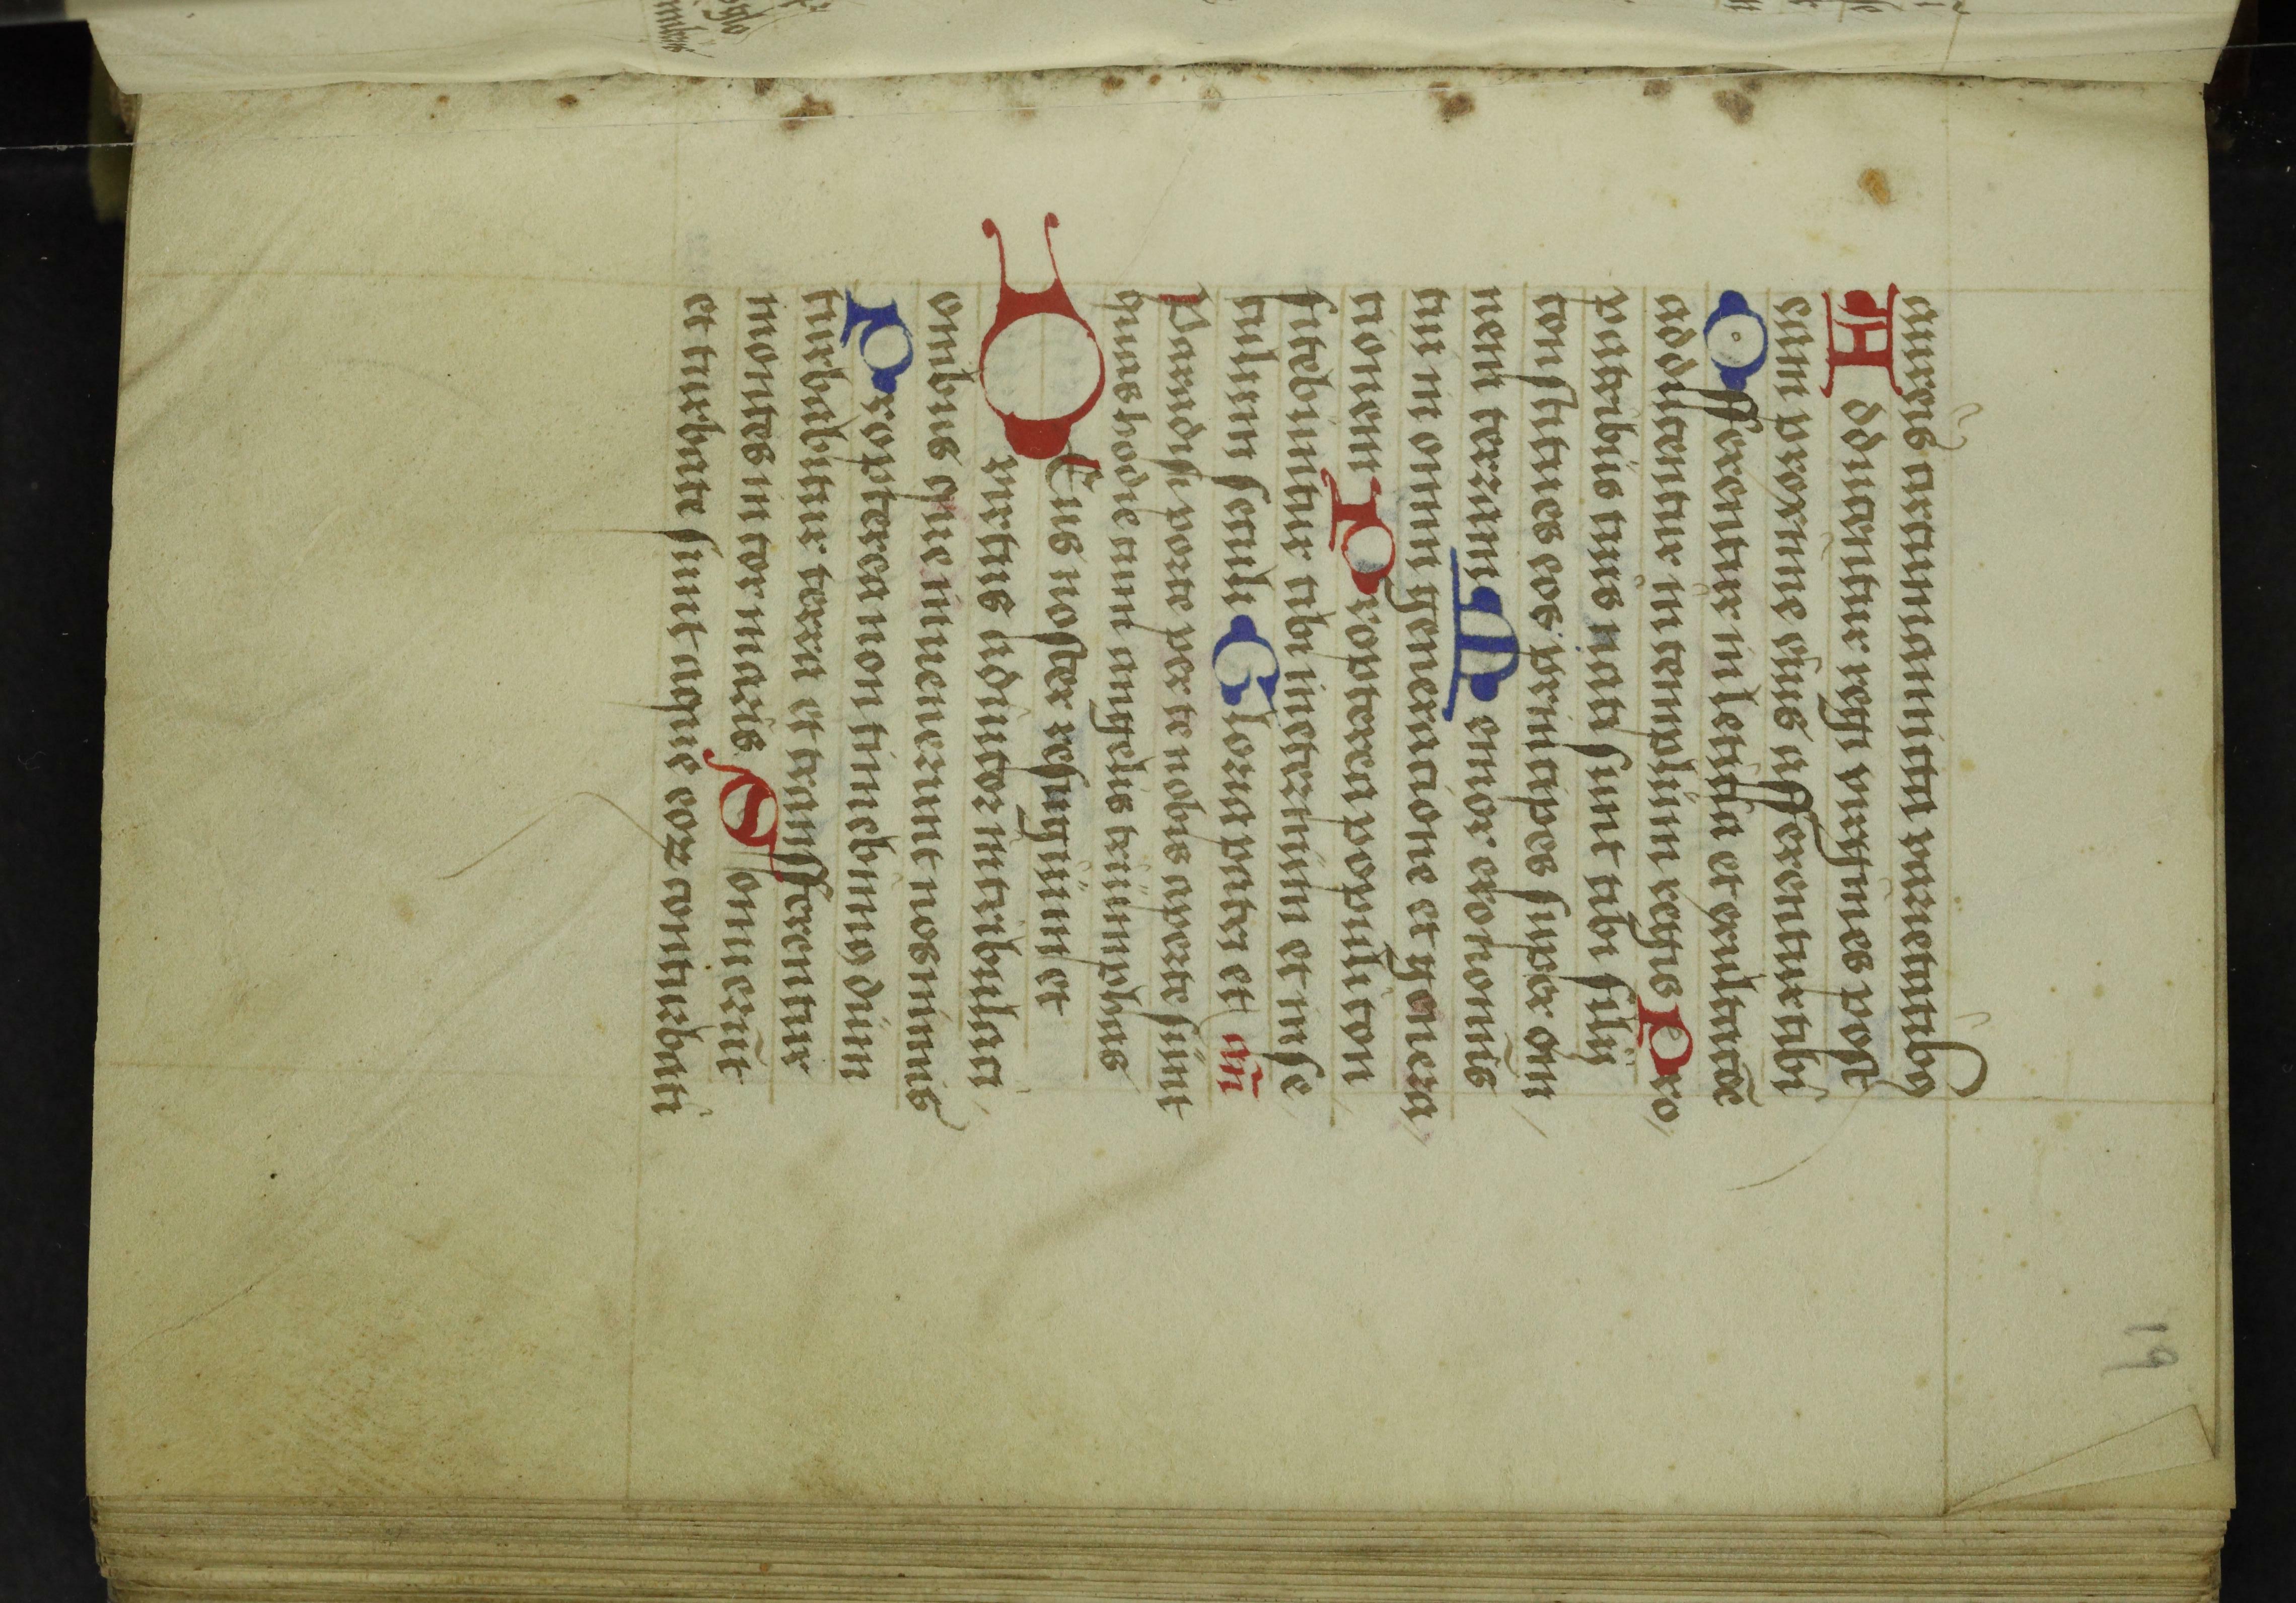 aureis circumamicta varietatibꝯ
Adducentur regi virgines post
eam proxime eius afferentur tibi
Offerentur in leticia et exultacõe
adducentur in templum regis Pro
patribus tuis nati sunt tibi filij
constitues eos principes super om̄
nem terram Memor ero nominis
tui in omni generacione et genera
cionem Propterea populi con
fitebuntur tibi in eternum et in se
culum seculi Gloria patri et añ
Paradisi porte per te nobis aperte sunt
quas hodie cum angelis triumphas
DEus noster refugium et
virtus adiutor in tribulaci
onibus que inuenerunt nos nimis
Propterea non timebimus dum
turbabitur terra et transferentur
montes in cor maris Sonuerūt
et turbate sunt aque eoꝝ conturbati
19